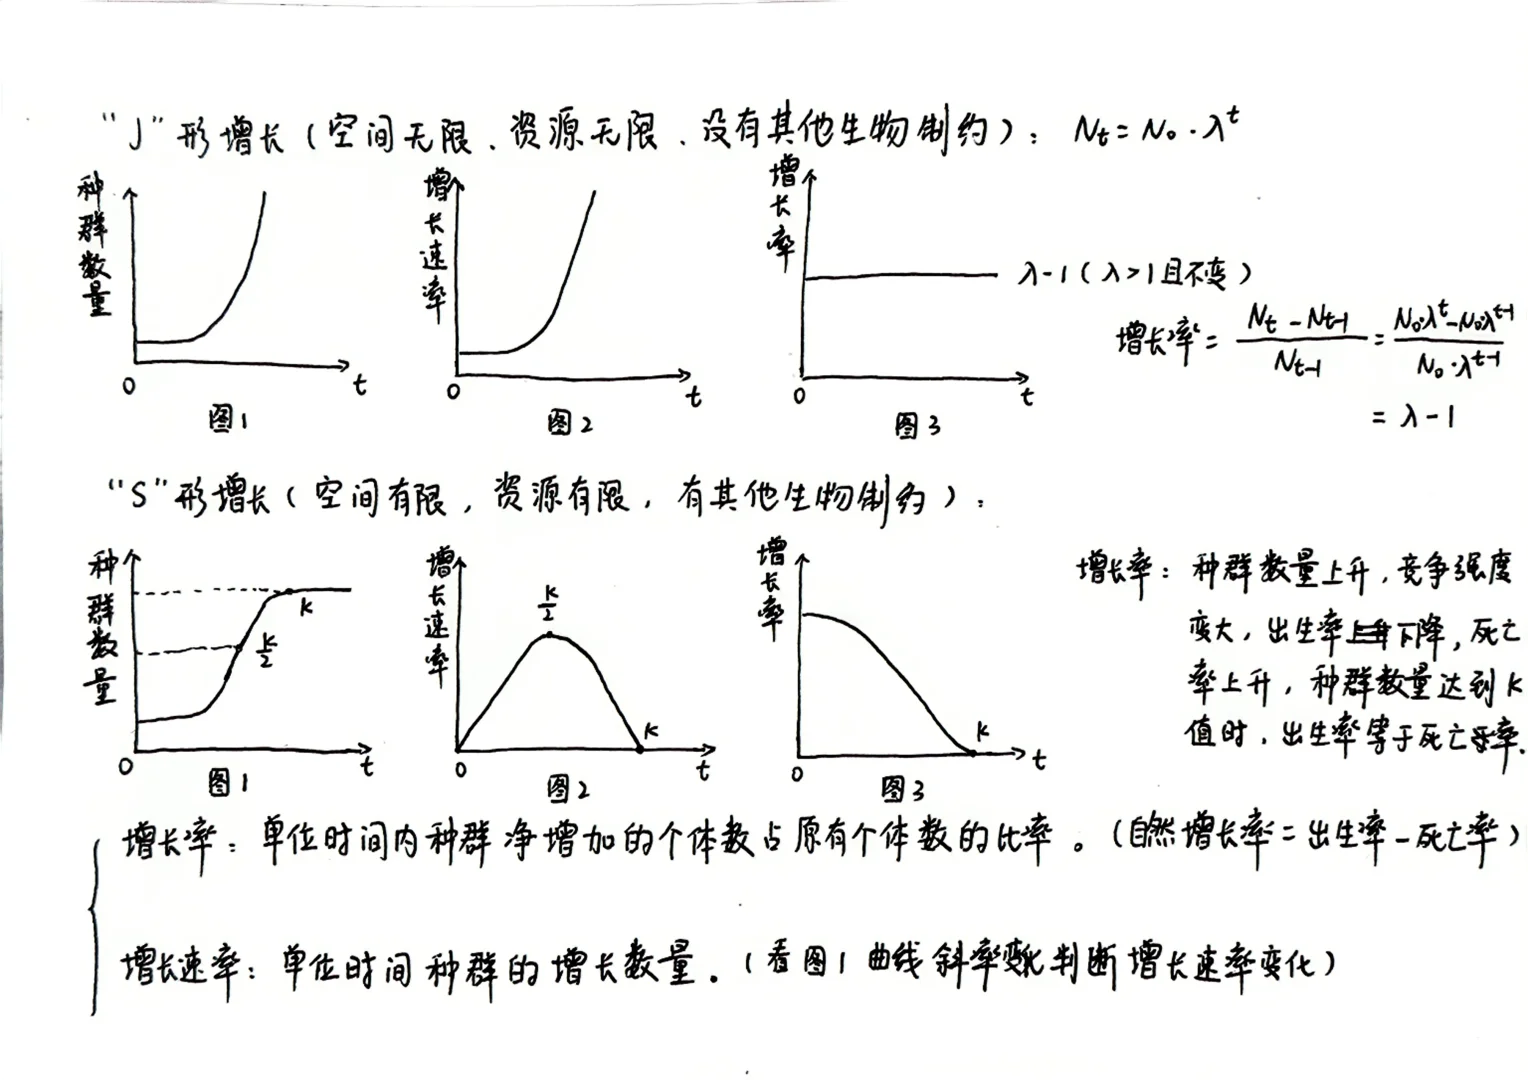 “J”形增长(空间无限、资源无限、没有其他生物制约):Nt=N₀·λ^t
种群数量
0
t
图1
增长速率
0
t
图2
增长率
0
t
图3
λ-1(λ>1且不变)
增长率= (Nt-Nt-1)/(Nt-1) = (N₀·λ^t-N₀λ^t-1)/(N₀·λ^t-1)
=λ-1
“S”形增长(空间有限,资源有限,有其他生物制约):
种群数量
K
K/2
0
t
图1
增长速率
K/2
K
0
t
图2
增长率
K
0
t
图3
增长率:种群数量上升,竞争强度
变大,出生率下降,死亡
率上升,种群数量达到K
值时,出生率等于死亡率.
增长率:单位时间内种群净增加的个体数占原有个体数的比率。(自然增长率=出生率-死亡率)
增长速率:单位时间种群的增长数量.(看图1曲线斜率变化判断增长速率变化)